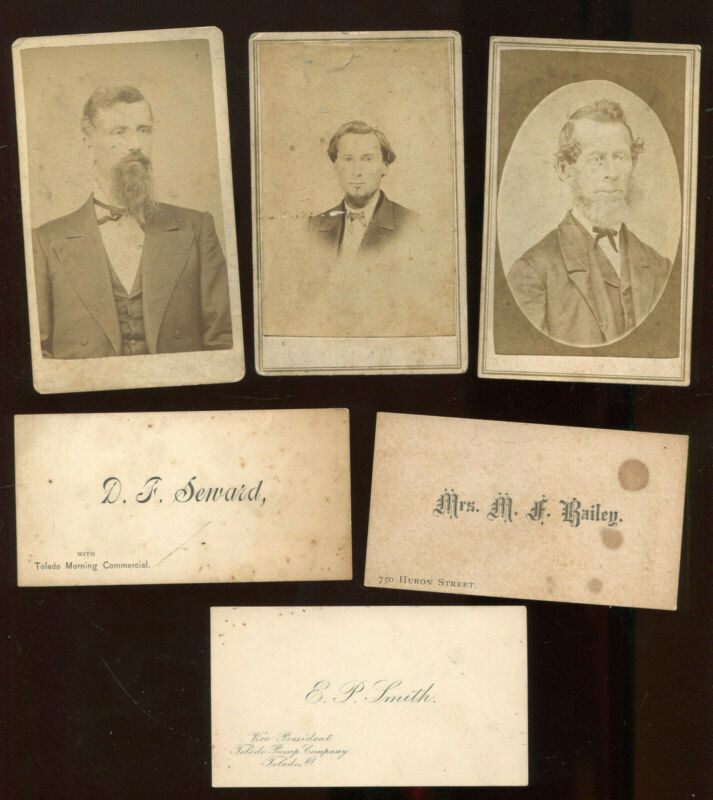 D. F. Seward,
WITH
Toledo Morning Commercial.
Mrs. M. F. Bailey.
750 HURON STREET.
E. P. Smith.
Vice President
Toledo Pump Company
Toledo, O.